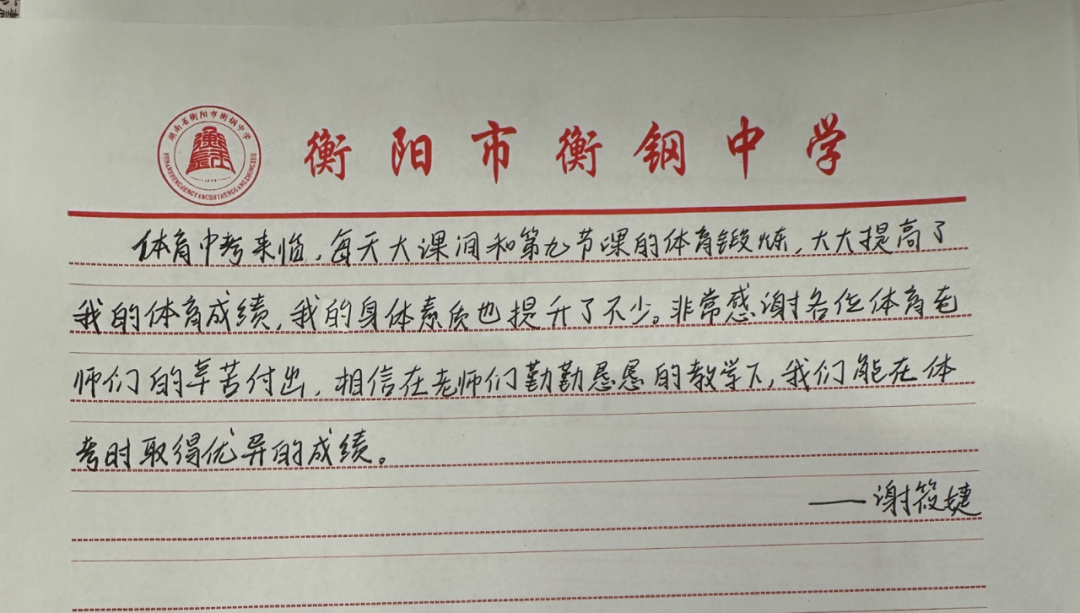 湖南省衡阳市衡钢中学
衡阳市衡钢中学
体育中考来临，每天大课间和第九节课的体育锻炼，大大提高了
我的体育成绩，我的身体素质也提升了不少。非常感谢各位体育老
师们的辛苦付出，相信在老师们勤勤恳恳的教学下，我们能在体
考时取得优异的成绩。
——谢筱婕